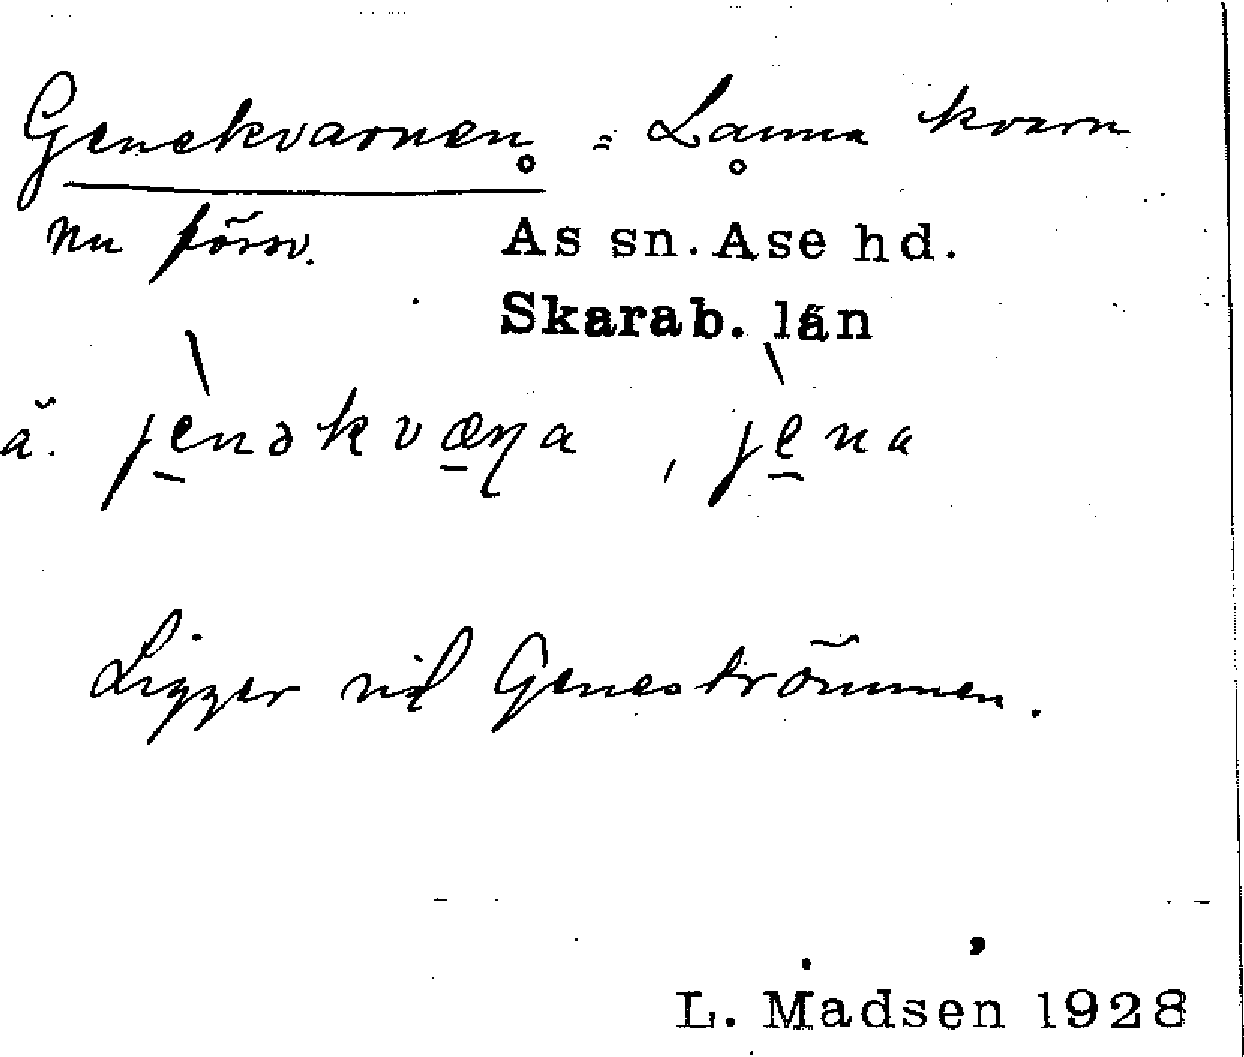 Genekvarnen = Lanna kvarn
nu försv. Ås sn. Åse hd.
Skarab. län
ä. jènəkvæɳa, jèna
Ligger vid Geneströmmen.
L. Madsen 1928